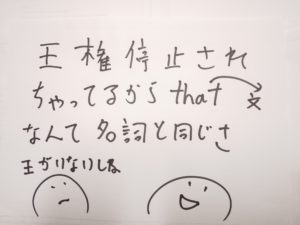 王権停止され
ちゃってるから that 文
なんて名詞と同じさ
王がいないしな